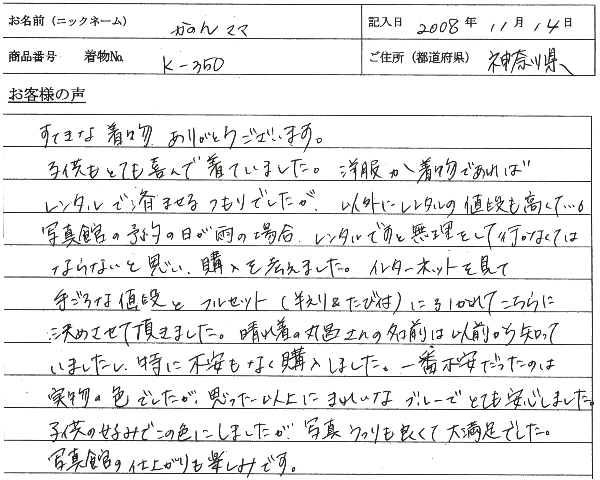 お名前（ニックネーム） かのんママ 記入日 2008年 11月 14日
商品番号 着物No. K-350 ご住所（都道府県） 神奈川県
お客様の声
すてきな着物 ありがとうございます。
子供もとても喜んで着ていました。洋服か着物であれば
レンタルで済ませるつもりでしたが、以外にレンタルの値段も高くて…。
写真館の予約の日が雨の場合、レンタルですと無理をして行かなくては
ならないと思い、購入を考えました。インターネットを見て
手ごろな値段と フルセット（半えり&たび付）にひかれてこちらに
決めさせて頂きました。晴れ着の丸昌さんの名前は以前から知って
いましたし、特に不安もなく購入しました。一番不安だったのは
実物の色でしたが、思った以上にきれいなブルーでとても安心しました。
子供の好みでこの色にしましたが、写真うつりも良くて大満足でした。
写真館の仕上がりも楽しみです。